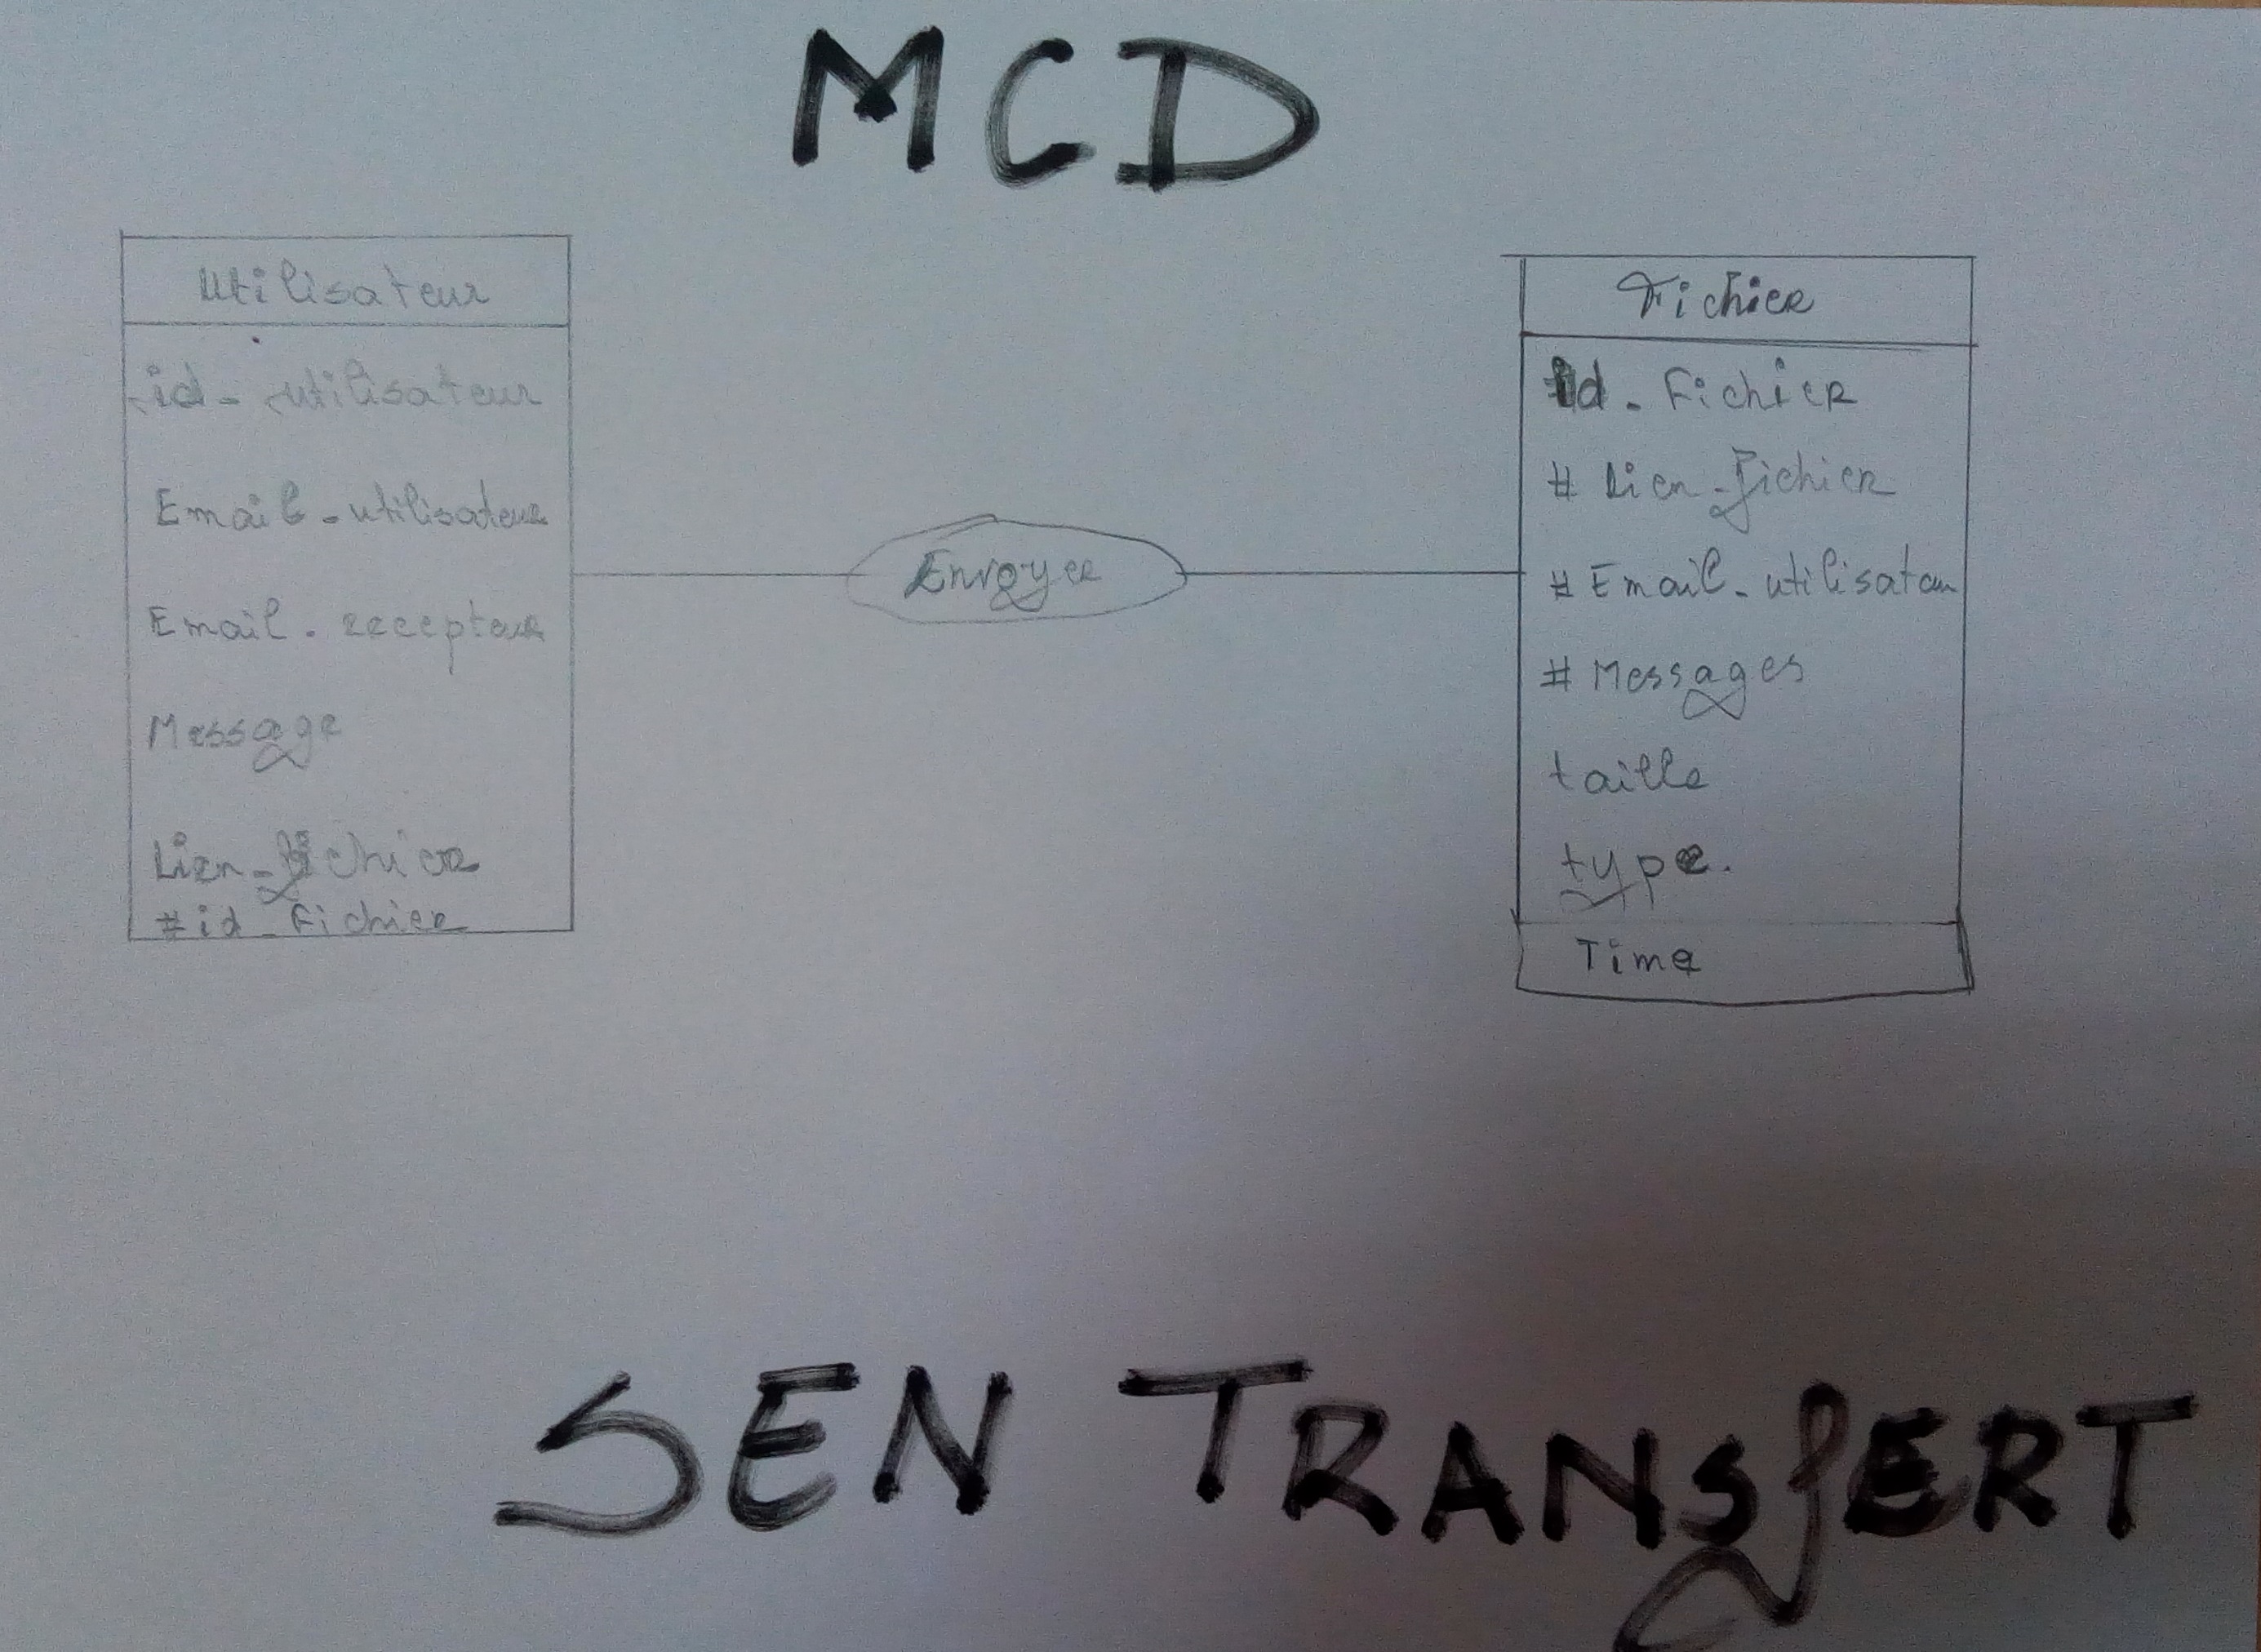 MCD
Utilisateur
id_utilisateur
Email_utilisateur
Email_recepteur
Message
Lien_fichier
#id_Fichier
Envoyer
Fichier
id_Fichier
# Lien_fichier
# Email_utilisateur
# Messages
taille
type.
Time
SEN TRANSfERT